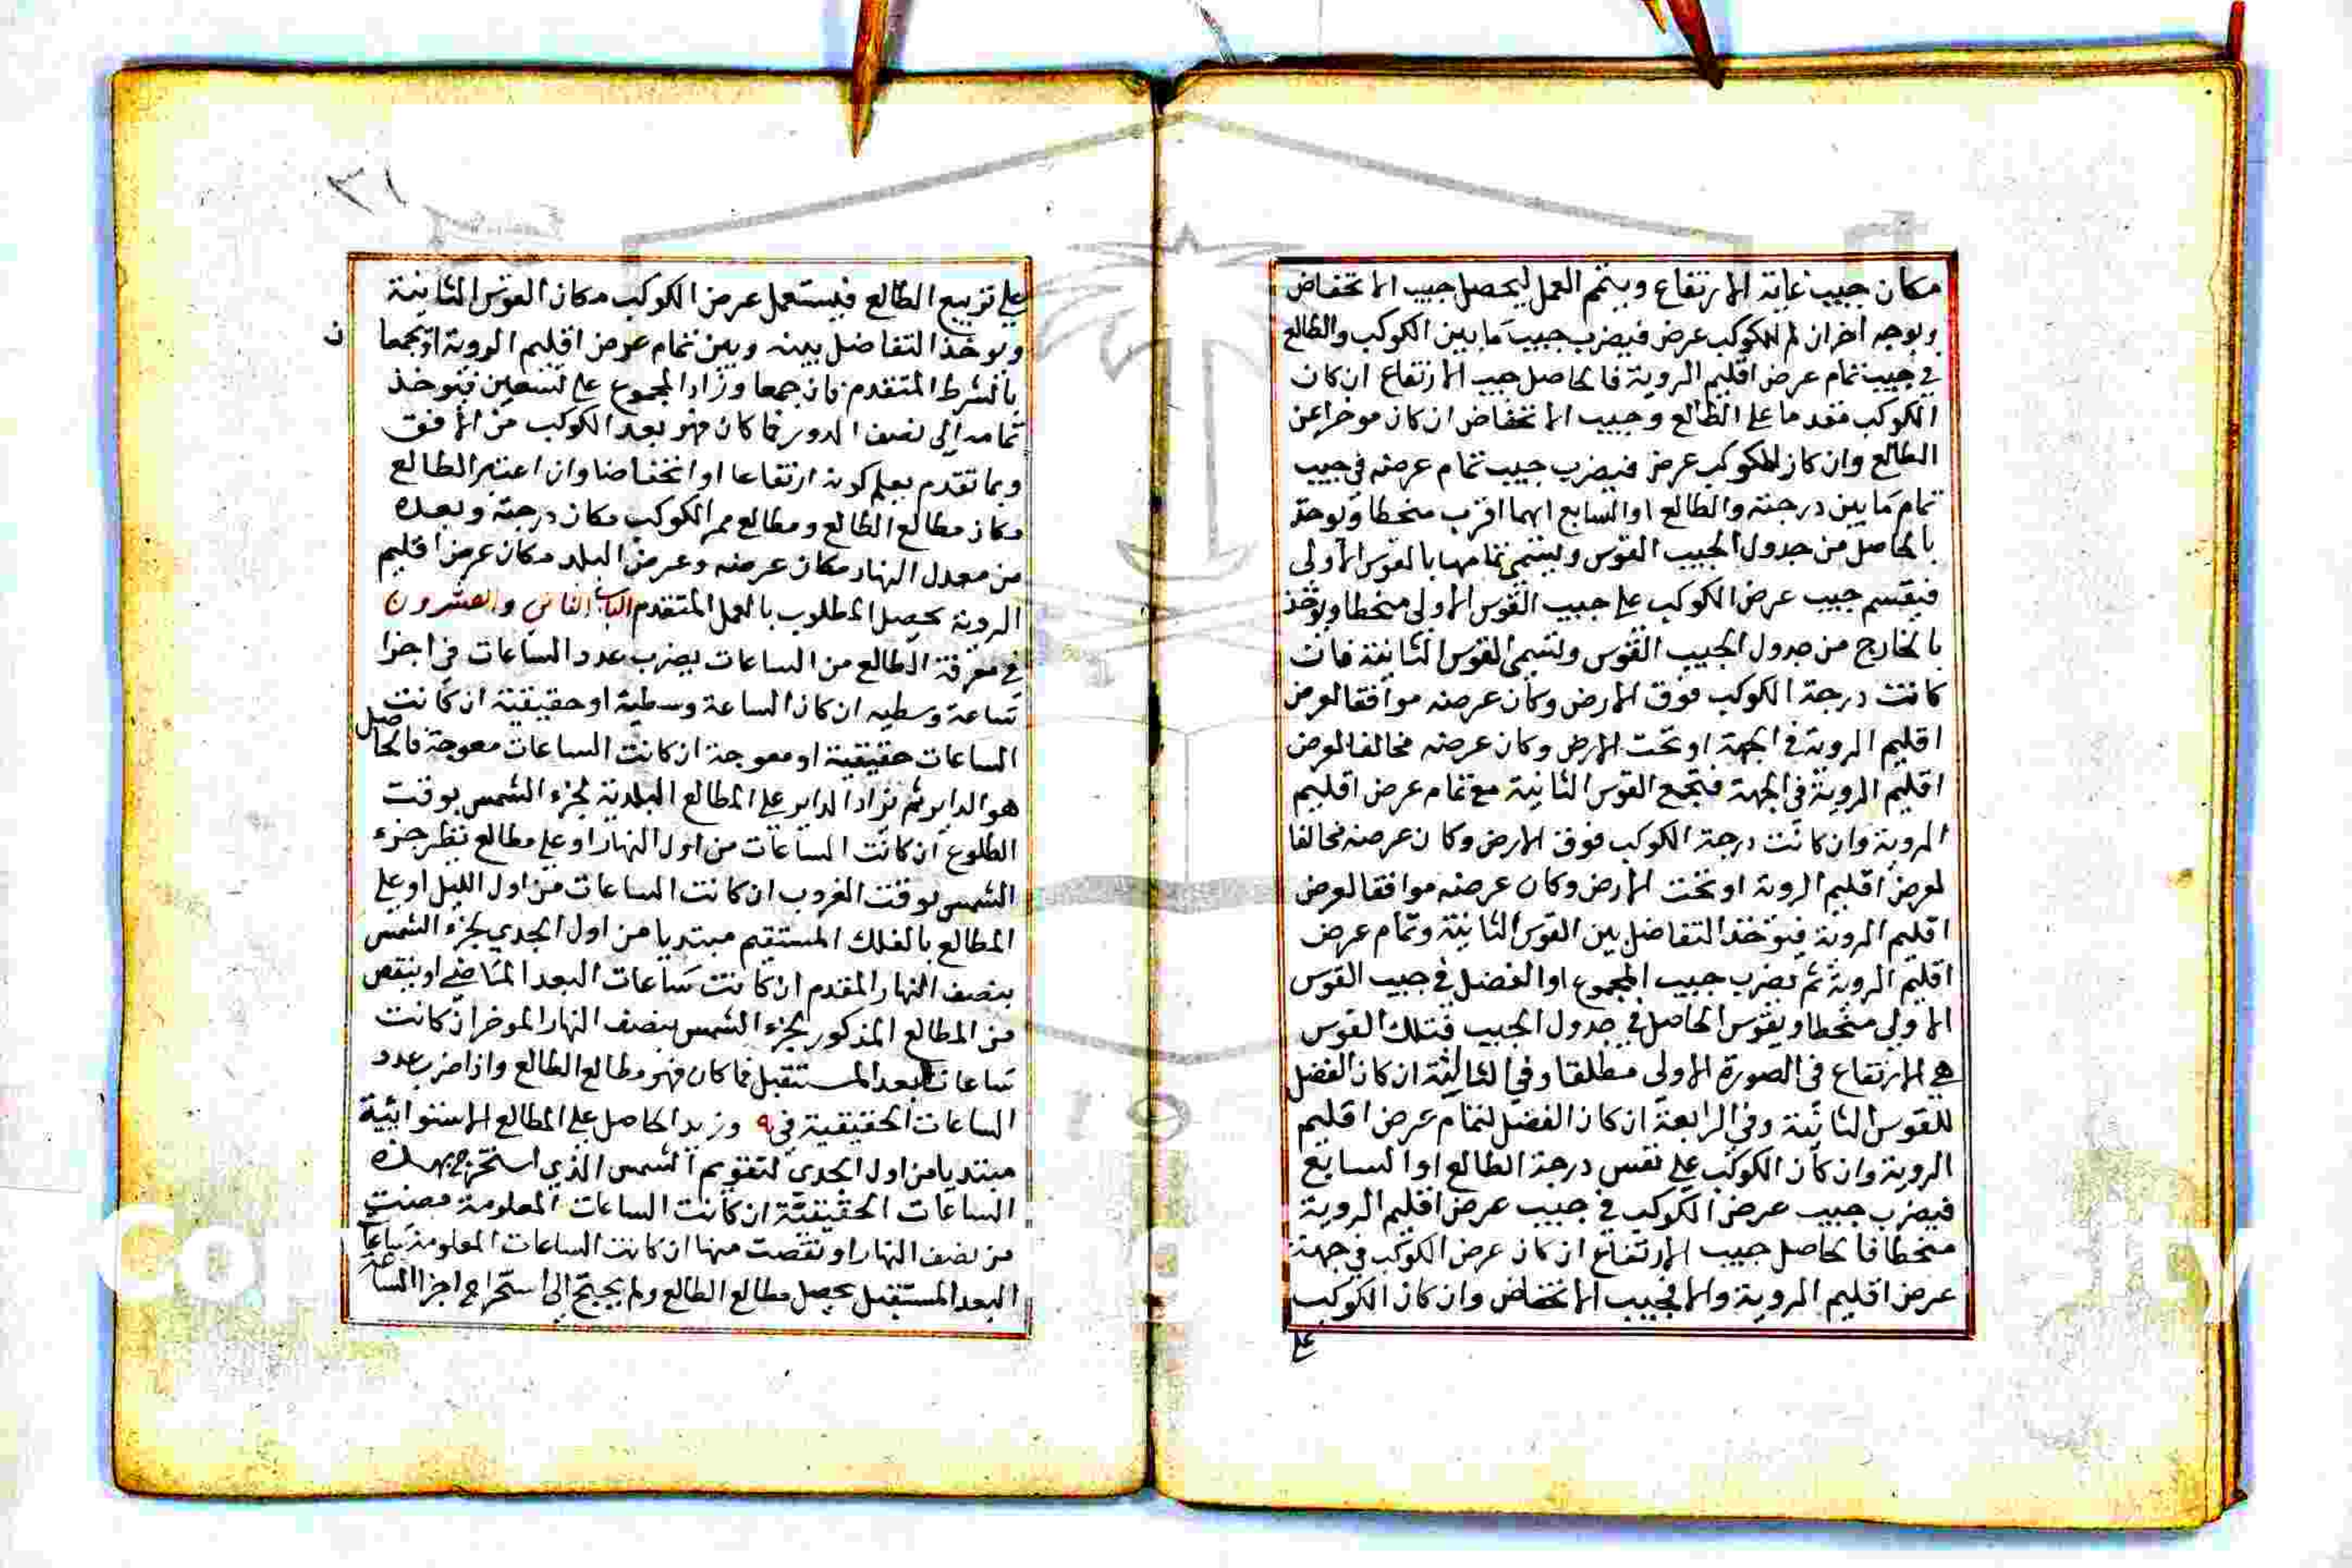 مكان جيب غاية الارتفاع ويتمم العمل ليحصل جيب الانخفاض
وبوجه اخر ان لم للكوكب عرض فيضرب جيب ما بين الكوكب والطالع
في جيب تمام عرض اقليم الروية فالحاصل جيب الارتفاع ان كان
الكوكب مقدما على الطالع وجيب الانخفاض ان كان موخرا عن
الطالع وان كان للكوكب عرض فيضرب جيب تمام عرضه في جيب
تمام ما بين درجته والطالع او السابع ايهما اقرب منحطا ويوخذ
بالحاصل من جدول الجيب القوس ويسمى تمامها بالقوس الاولى
فيقسم جيب عرض الكوكب على جيب القوس الاولى منحطا ويوخذ
بالخارج من جدول الجيب القوس وتسمى القوس الثانية فان
كانت درجة الكوكب فوق الارض وكان عرضه موافقا لعرض
اقليم الروية في الجهة او تحت الارض وكان عرضه مخالفا لعرض
اقليم الروية في الجهة فتجمع القوس الثانية مع تمام عرض اقليم
الروية وان كانت درجة الكوكب فوق الارض وكان عرضه مخالفا
لعرض اقليم الروية او تحت الارض وكان عرضه موافقا لعرض
اقليم الروية فيوخذ التفاضل بين القوس الثانية وتمام عرض
اقليم الروية ثم نضرب جيب المجموع او الفضل في جيب القوس
الاولى منحطا ويقوس الحاصل في جدول الجيب فتلك القوس
هي الارتفاع في الصورة الاولى مطلقا وفي الثالثة ان كان الفضل
للقوس الثانية وفي الرابعة ان كان الفضل لتمام عرض اقليم
الروية وان كان الكوكب على نفس درجة الطالع او السابع
فيضرب جيب عرض الكوكب في جيب عرض اقليم الروية
منحطا فالحاصل جيب الارتفاع ان كان عرض الكوكب في جهة
عرض اقليم الروية والا فجيب الانخفاض وان كان الكوكب
على
٣١
على تربيع الطالع فيستعمل عرض الكوكب مكان القوس الثانية
ويوخذ التفاضل بينه وبين تمام عرض اقليم الروية او يجمعا
ن
بالشرط المتقدم فان جمعا وزاد المجموع على تسعين فيوخذ
تمامه الى نصف الدور فما كان فهو بعد الكوكب من الافق
وبما تقدم يعلم كونه ارتفاعا او انخفاضا وان اعتبر الطالع
مكان مطالع الطالع ومطالع ممر الكوكب مكان درجته وبعده
من معدل النهار مكان عرضه وعرض البلد مكان عرض اقليم
الروية يحصل المطلوب بالعمل المتقدم الباب الثامن والعشرون
في معرفة الطالع من الساعات يضرب عدد الساعات في اجزا
ساعة وسطيه ان كان الساعة وسطية او حقيقية ان كانت
الساعات حقيقية او معوجة ان كانت الساعات معوجة فالحاصل
هو الداير ثم نزاد الداير على المطالع البلدية لجزء الشمس بوقت
الطلوع ان كانت الساعات من اول النهار او على مطالع نظر جزء
الشمس بوقت الغروب ان كانت الساعات من اول الليل او على
المطالع بالفلك المستقيم مبتديا من اول الجدي لجزء الشمس
بنصف النهار المقدم ان كانت ساعات البعد الماضي او ينقص
من المطالع المذكور لجزء الشمس بنصف النهار الموخر ان كانت
ساعات البعد المستقبل فما كان فهو مطالع الطالع واذا ضرب عدد
الساعات الحقيقية في وزيد الحاصل على المطالع الاستوائية
مبتديا من اول الجدي لتقويم الشمس الذي استخرج بهذه
الساعات الحقيقية ان كانت الساعات المعلومة مضت
من نصف النهار او نقصت منها ان كانت الساعات المعلومة ساعات
البعد المستقبل يحصل مطالع الطالع ولم يحتج الى استخراج اجزا الساعة